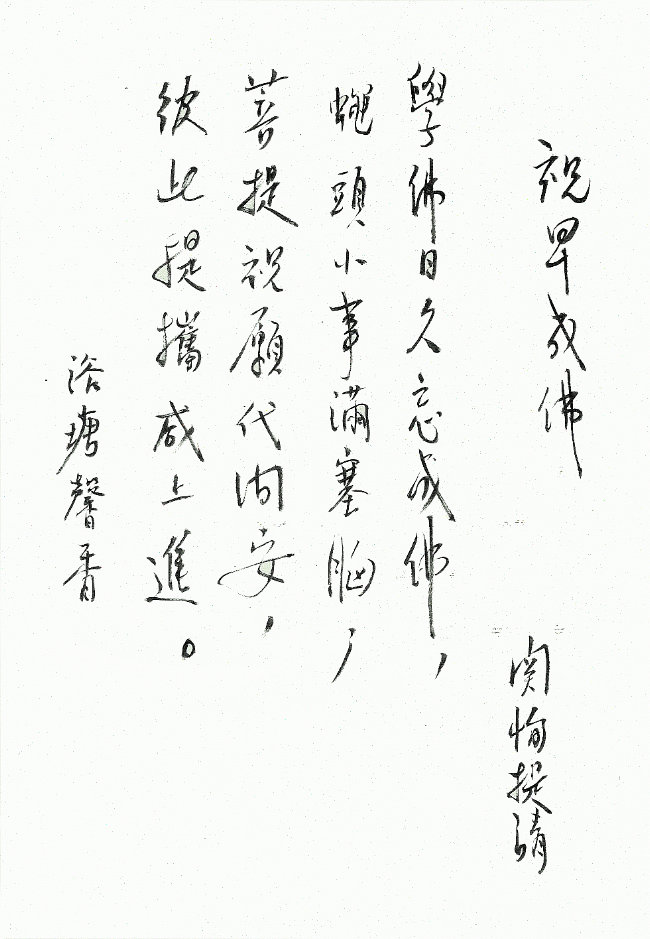 祝早成佛
學佛日久忘成佛，
蠅頭小事滿塞胸，
菩提祝願代問安，
彼此提攜咸上進。
浴塘馨香